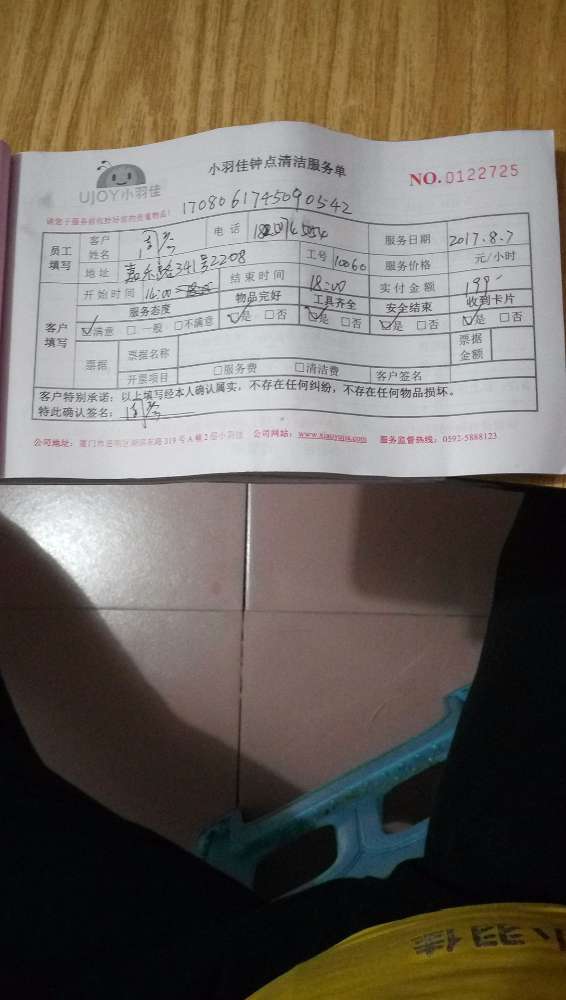 小羽佳钟点清洁服务单
NO.0122725
UJOY小羽佳
1708061745090542
员工填写
客户姓名
电话
服务日期 2017.8.7
地址 嘉禾路341号2208
工号 10060
服务价格 元/小时
开始时间 16:00
结束时间 18:00
实付金额 199
客户填写
服务态度 物品完好 工具齐全 安全结束 收到卡片
☑满意 □一般 □不满意 ☑是 □否 ☑是 □否 ☑是 □否 ☑是 □否
票据
票据名称
票据金额
开票项目 □服务费 □清洁费 客户签名
客户特别承诺：以上填写经本人确认属实，不存在任何纠纷，不存在任何物品损坏。
特此确认签名：
公司地址：厦门市思明区湖滨东路319号A幢2层小羽佳 公司网站： 服务监督热线：0592-5888123
小羽佳